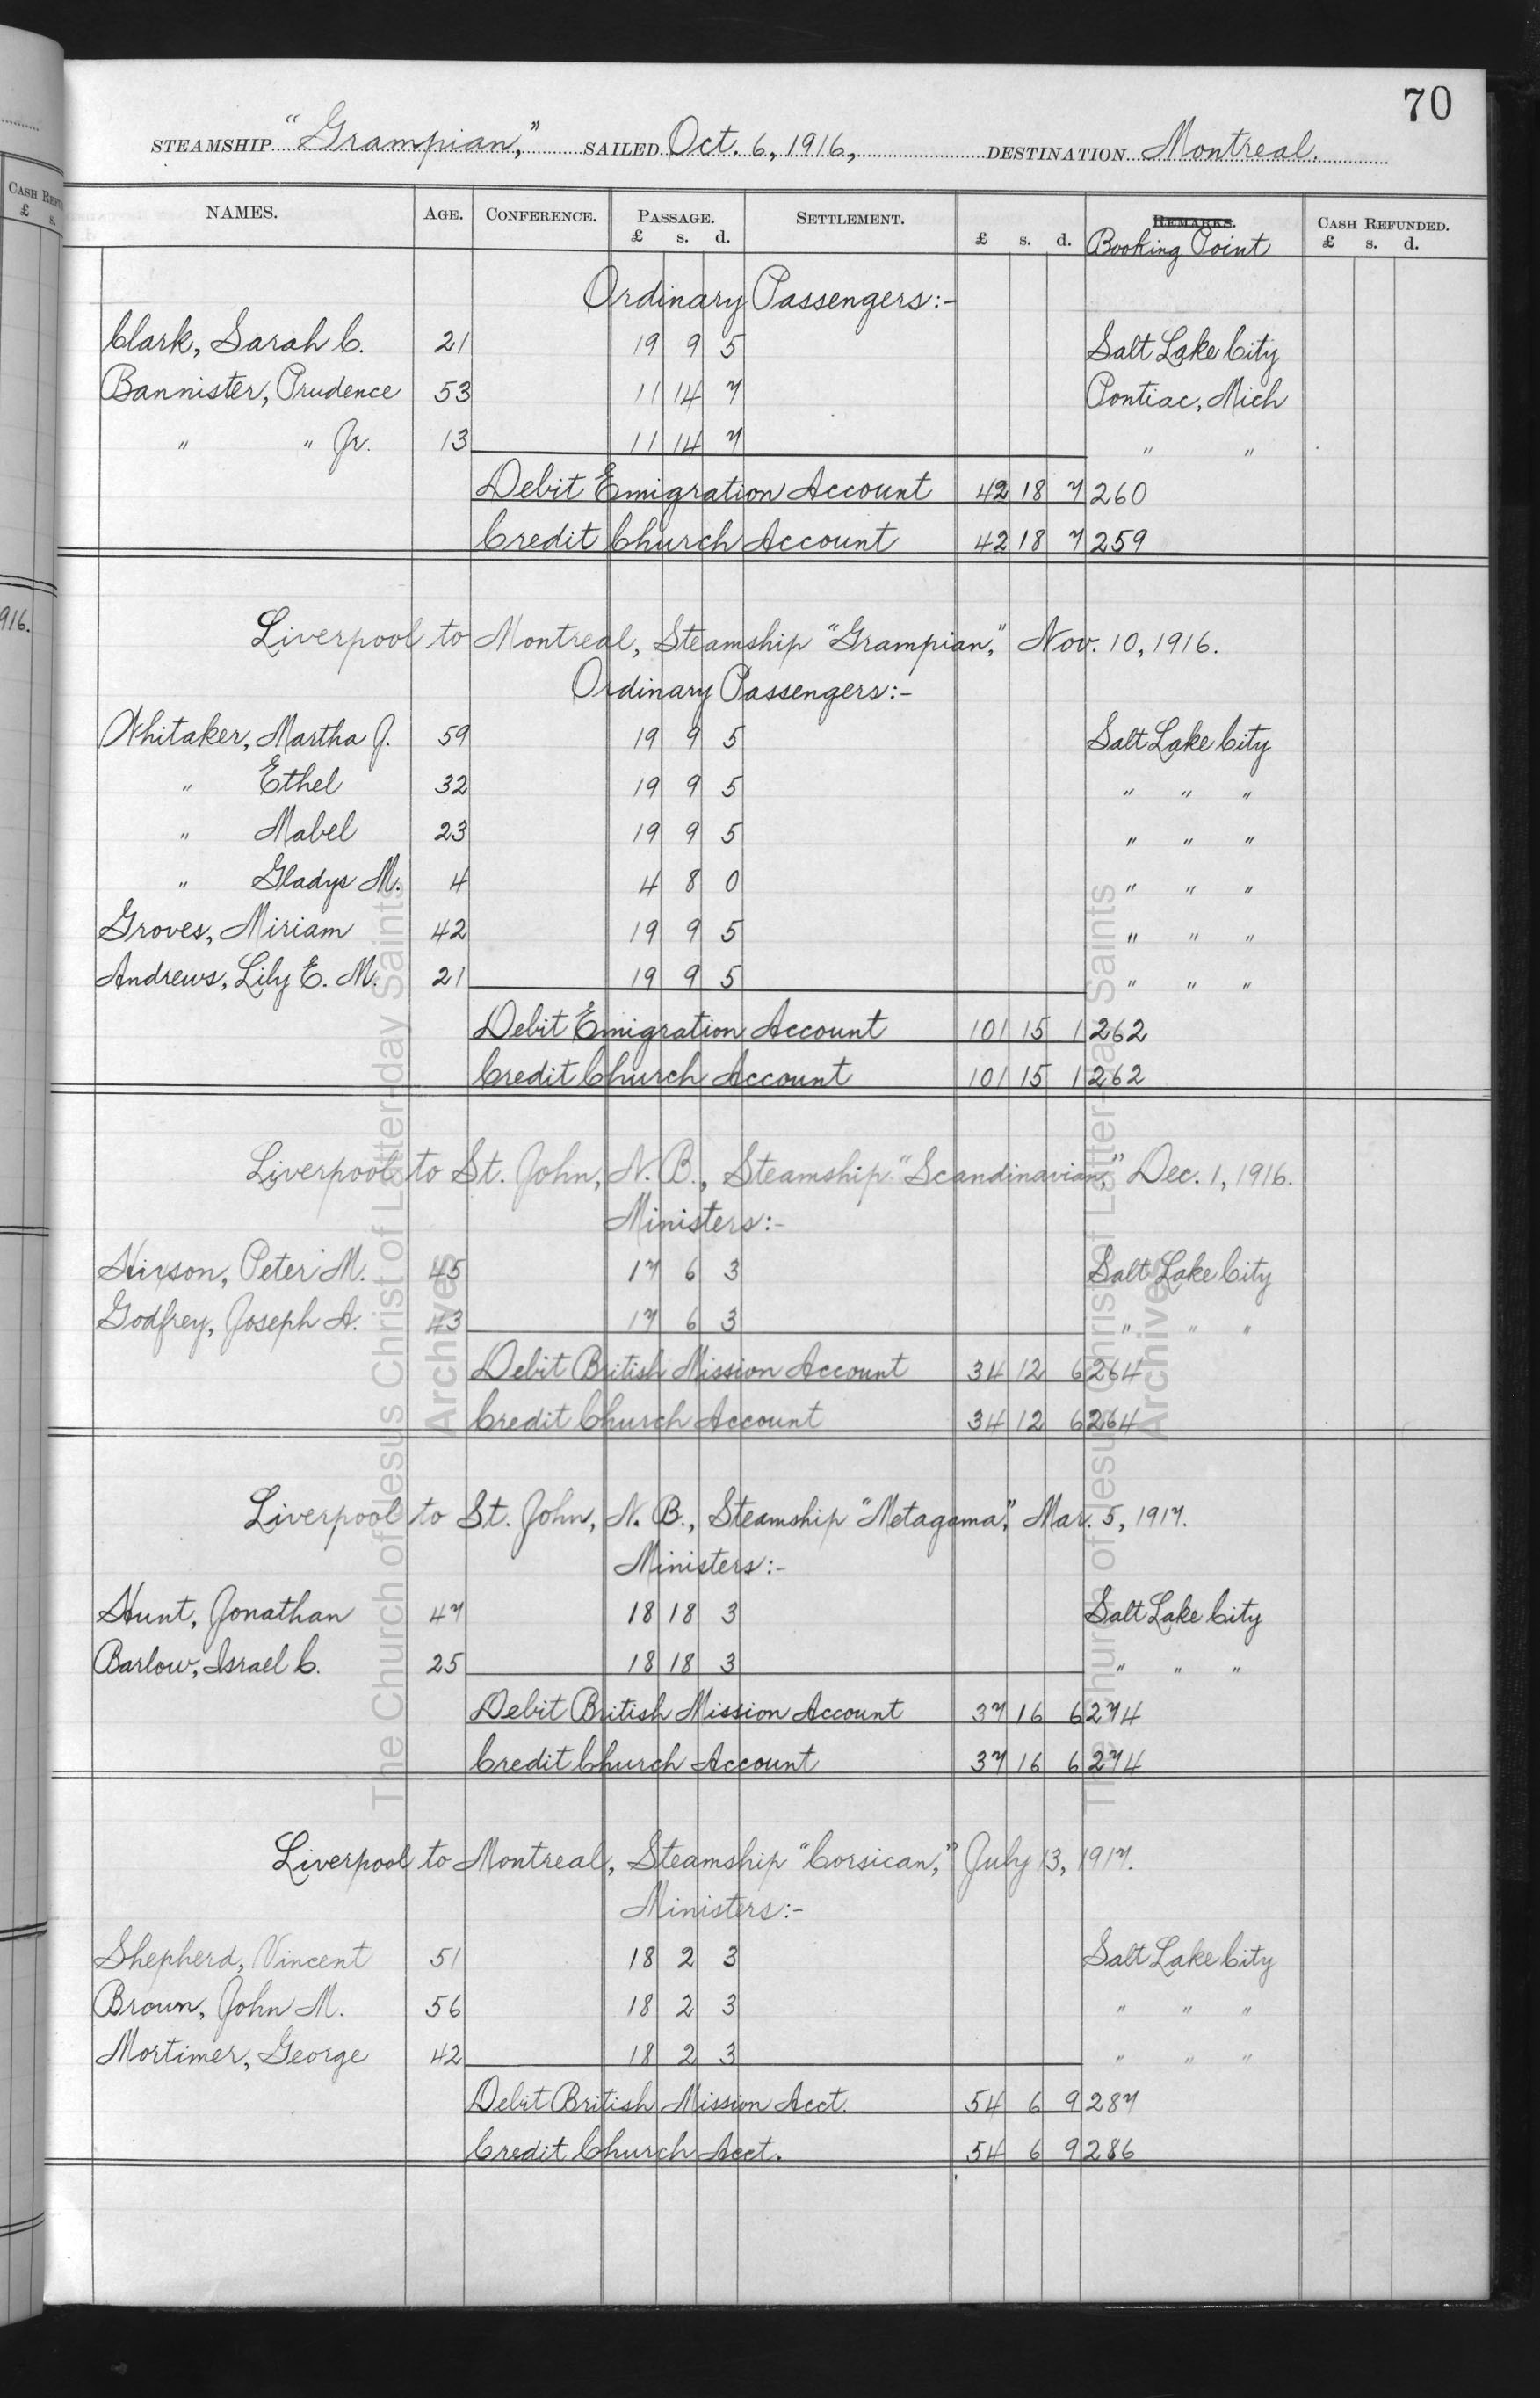 70
STEAMSHIP "Grampian," SAILED Oct. 6, 1916, DESTINATION Montreal.
NAMES. AGE. CONFERENCE. PASSAGE. SETTLEMENT. REMARKS. CASH REFUNDED.
£ s. d. £ s. d. Booking Point £ s. d.
Ordinary Passengers:-
Clark, Sarah C. 21 19 9 5 Salt Lake City
Bannister, Prudence 53 11 14 7 Pontiac, Mich
" " Jr. 13 11 14 7 " "
Debit Emigration Account 42 18 7 260
Credit Church Account 42 18 7 259
Liverpool to Montreal, Steamship "Grampian," Nov. 10, 1916.
Ordinary Passengers:-
Whitaker, Martha J. 59 19 9 5 Salt Lake City
" Ethel 32 19 9 5 " " "
" Mabel 23 19 9 5 " " "
" Gladys M. 4 4 8 0 " " "
Groves, Miriam 42 19 9 5 " " "
Andrews, Lily E. M. 21 19 9 5 " " "
Debit Emigration Account 101 15 1 262
Credit Church Account 101 15 1 262
Liverpool to St. John, N. B., Steamship "Scandinavian," Dec. 1, 1916.
Ministers:-
Peter M. 45 17 6 3 Salt Lake City
Godfrey, Joseph A. 43 17 6 3 " " "
Debit British Mission Account 34 12 6 264
Credit Church Account 34 12 6 264
Liverpool to St. John, N. B., Steamship "Metagama," Mar. 5, 1917.
Ministers:-
Hunt, Jonathan 47 18 18 3 Salt Lake City
Barlow, Israel C. 25 18 18 3 " " "
Debit British Mission Account 37 16 6 274
Credit Church Account 37 16 6 274
Liverpool to Montreal, Steamship "Corsican," July 13, 1917.
Ministers:-
Shepherd, Vincent 51 18 2 3 Salt Lake City
Brown, John M. 56 18 2 3 " " "
Mortimer, George 42 18 2 3 " " "
Debit British Mission Acct. 54 6 9 287
Credit Church Acct. 54 6 9 286
CASH
£ s.
916.
The Church of Jesus Christ of Latter-day Saints
Archives
The Church of Jesus Christ of Latter-day Saints
Archives